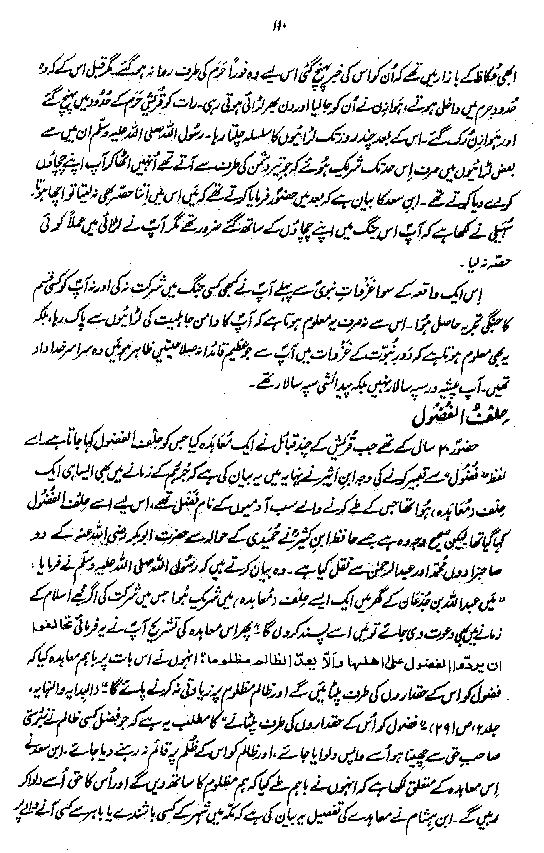 ۱۱۰
ابھی عُکاظ کے بازار میں تھے کہ اُن کو اس کی خبر پہنچ گئی اس لیے وہ فوراً حَرَم کی طرف روانہ ہو گئے، مگر قبل اس کے کہ وہ
حدودِ حرم میں داخل ہوتے، ہوازِن نے اُن کو جا لیا اور دن بھر لڑائی ہوتی رہی۔ رات کو قریش حَرَم کے حُدود میں پہنچ گئے
اور ہوازِن رُک گئے۔ اس کے بعد چند روز تک لڑائیوں کا سلسلہ چلتا رہا۔ رسول اللہ صلی اللہ علیہ وسلم ان میں سے
بعض لڑائیوں میں صرف اس حد تک شریک ہوئے کہ جو تیر دشمن کی طرف سے آتے تھے اُنہیں اٹھا کر آپ اپنے چچاؤں
کو دے دیا کرتے تھے۔ ابن سعد کا بیان ہے کہ بعد میں حضورؐ فرمایا کرتے تھے کہ میں اس میں اتنا حصّہ بھی نہ لیتا تو اچھا ہوتا۔
سُہَیلی نے لکھا ہے کہ آپؐ اس جنگ میں اپنے چچاؤں کے ساتھ گئے ضرور تھے مگر آپؐ نے لڑائی میں عملاً کوئی
حصّہ نہ لیا۔
اِس ایک واقعہ کے سوا غزواتِ نبوی سے پہلے آپؐ نے کبھی کسی جنگ میں شرکت نہ کی اور نہ آپؐ کو کسی قسم
کا جنگی تجربہ حاصل ہُوا۔ اس سے نہ صرف یہ معلوم ہوتا ہے کہ آپؐ کا دامن جاہلیت کی لڑائیوں سے پاک رہا، بلکہ
یہ بھی معلوم ہوتا ہے کہ دَورِ نبوّت کے غزوات میں آپؐ سے جو عظیم قائدانہ صلاحیتیں ظاہر ہوئیں وہ سراسر خداداد
تھیں۔ آپ پیشہ ور سپہ سالار نہیں بلکہ پیدائشی سپہ سالار تھے۔
حِلف الفُضُول
حضورؐ ۲۰ سال کے تھے جب قریش کے چند قبائل نے ایک مُعاہدہ کیا جس کو حِلف الفضول کہا جاتا ہے۔ اسے
لفظ "فُضُول" سے تعبیر کرنے کی وجہ ابن اثیر نے نہایہ میں یہ بیان کی ہے کہ جُرہُم کے زمانے میں بھی ایسا ہی ایک
حِلف (معاہدہ) ہُوا تھا جس کے طے کرنے والے سب آدمیوں کے نام فضل تھے، اس لیے اسے حِلف الفضول
کہا گیا تھا، لیکن صحیح وجہ وہ ہے جسے حافظ ابن کثیر نے حُمیدی کے حوالہ سے حضرت ابوبکر رضی اللہ عنہ کے دو
صاحبزادوں محمد اور عبدالرحمٰن سے نقل کیا ہے۔ وہ بیان کرتے ہیں کہ رسول اللہ صلی اللہ علیہ وسلم نے فرمایا،
"میں عبد اللہ بن جُدعان کے گھر میں ایک ایسے حِلف (معاہدہ) میں شریک ہُوا جس میں شرکت کی اگر مجھے اسلام کے
زمانے میں بھی دعوت دی جائے تو میں اسے پسند کروں گا"۔ پھر اس معاہدہ کی تشریح آپؐ نے یہ فرمائی تحالفوا
ان یردّوا الفضول علیٰ اھلھا والّا یعدّ الظالم مظلوما؛ انہوں نے اس بات پر باہم معاہدہ کیا کہ
فضول کو اس کے حقداروں کی طرف پلٹائیں گے اور ظالم مظلوم پر زیادتی نہ کرنے پائے گا" (البدایہ والنہایہ،
جلد ۲، ص ۲۹۱)۔ "فضول کو اُس کے حقداروں کی طرف پلٹانے" کا مطلب یہ ہے کہ جو فضل کسی ظالم نے زبردستی
صاحبِ حق سے چھینا ہو اُسے واپس دلوایا جائے، اور ظالم کو اس کے ظلم پر قائم نہ رہنے دیا جائے۔ ابن سعد نے
اِس معاہدہ کے متعلق لکھا ہے کہ انہوں نے باہم طے کیا کہ ہم مظلوم کا ساتھ دیں گے اور اُس کا حق اُسے دلا کر
رہیں گے۔ ابن ہشام نے معاہدے کی تفصیل یہ بیان کی ہے کہ مکہ میں شہر کے کسی باشندے یا باہر سے کسی آنے والے پر